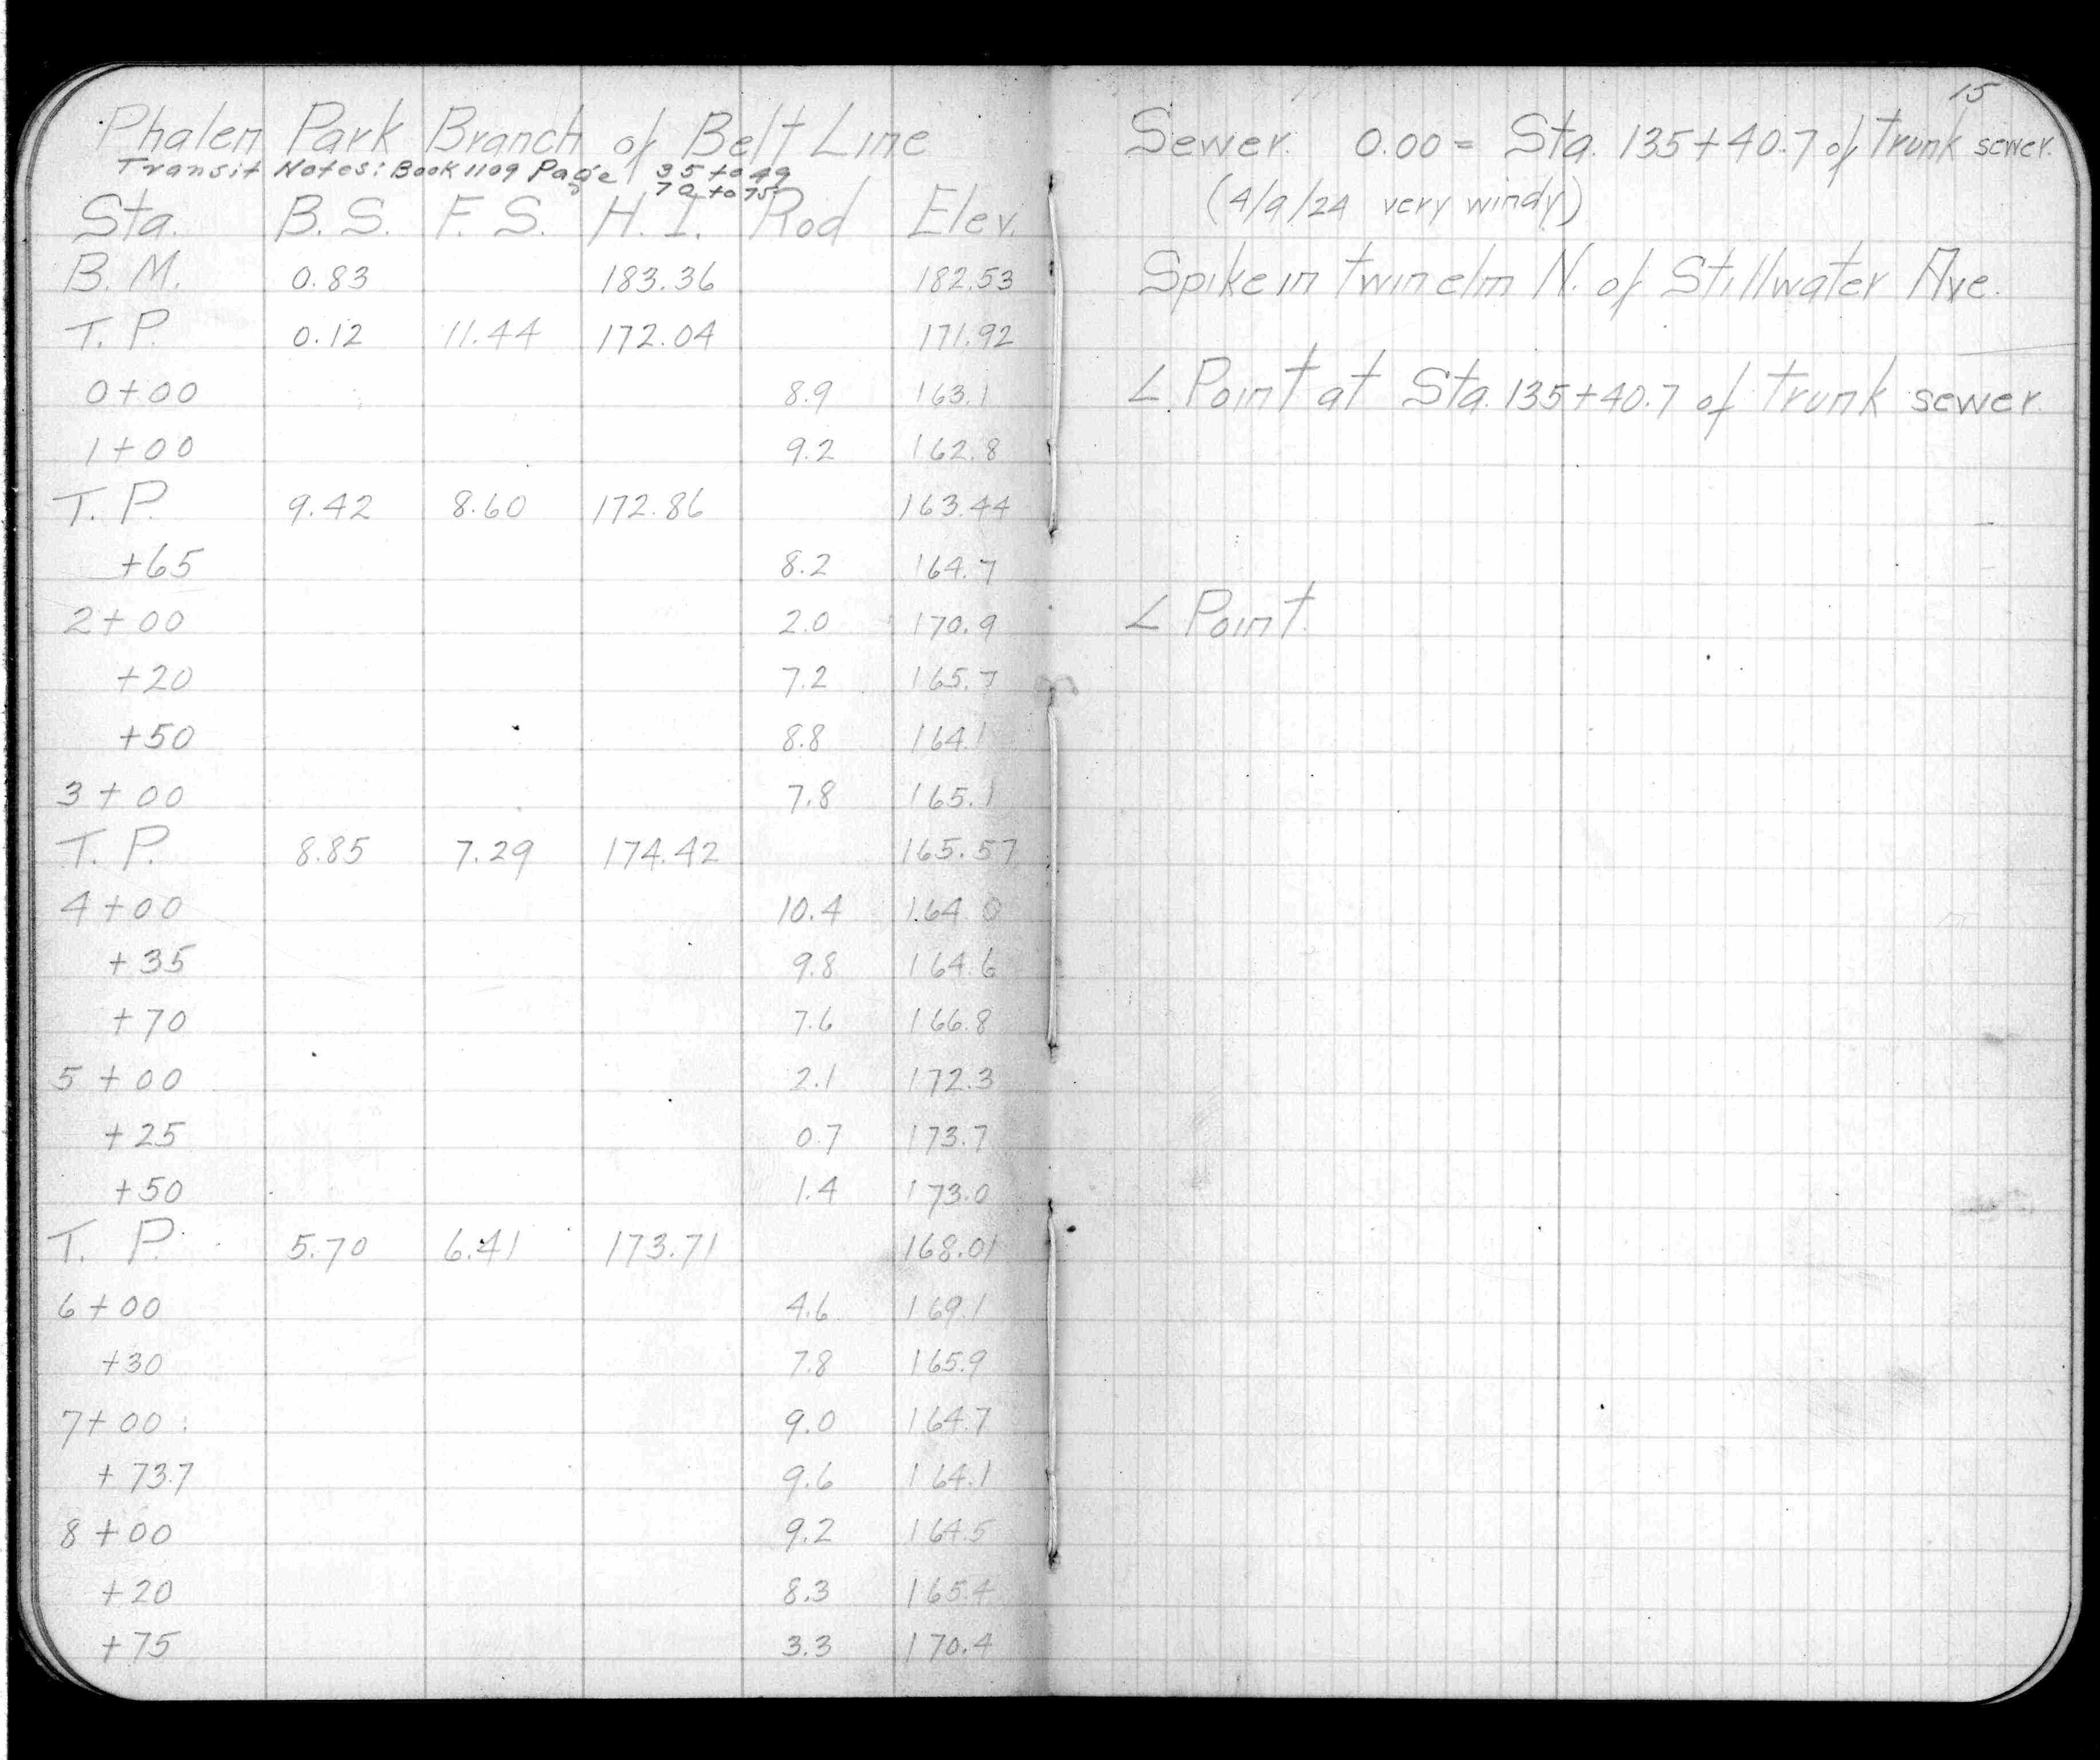 Phalen Park Branch of Belt Line
Transit Notes: Book 1109 Page 35 to 49
70 to 75
Sta. B.S. F.S. H.I. Rod Elev.
B.M. 0.83 183.36 182.53
T.P. 0.12 11.44 172.04 171.92
0+00 8.9 163.1
1+00 9.2 162.8
T.P. 9.42 8.60 172.86 163.44
+65 8.2 164.7
2+00 2.0 170.9
+20 7.2 165.7
+50 8.8 164.1
3+00 7.8 165.1
T.P. 8.85 7.29 174.42 165.57
4+00 10.4 164.0
+35 9.8 164.6
+70 7.6 166.8
5+00 2.1 172.3
+25 0.7 173.7
+50 1.4 173.0
T.P. 5.70 6.41 173.71 168.01
6+00 4.6 169.1
+30 7.8 165.9
7+00 9.0 164.7
+73.7 9.6 164.1
8+00 9.2 164.5
+20 8.3 165.4
+75 3.3 170.4
15
Sewer. 0.00 = Sta. 135+40.7 of trunk sewer.
(4/9/24 very windy)
Spike in twin elm N. of Stillwater Ave.
∠ Point at Sta. 135+40.7 of trunk sewer.
∠ Point.